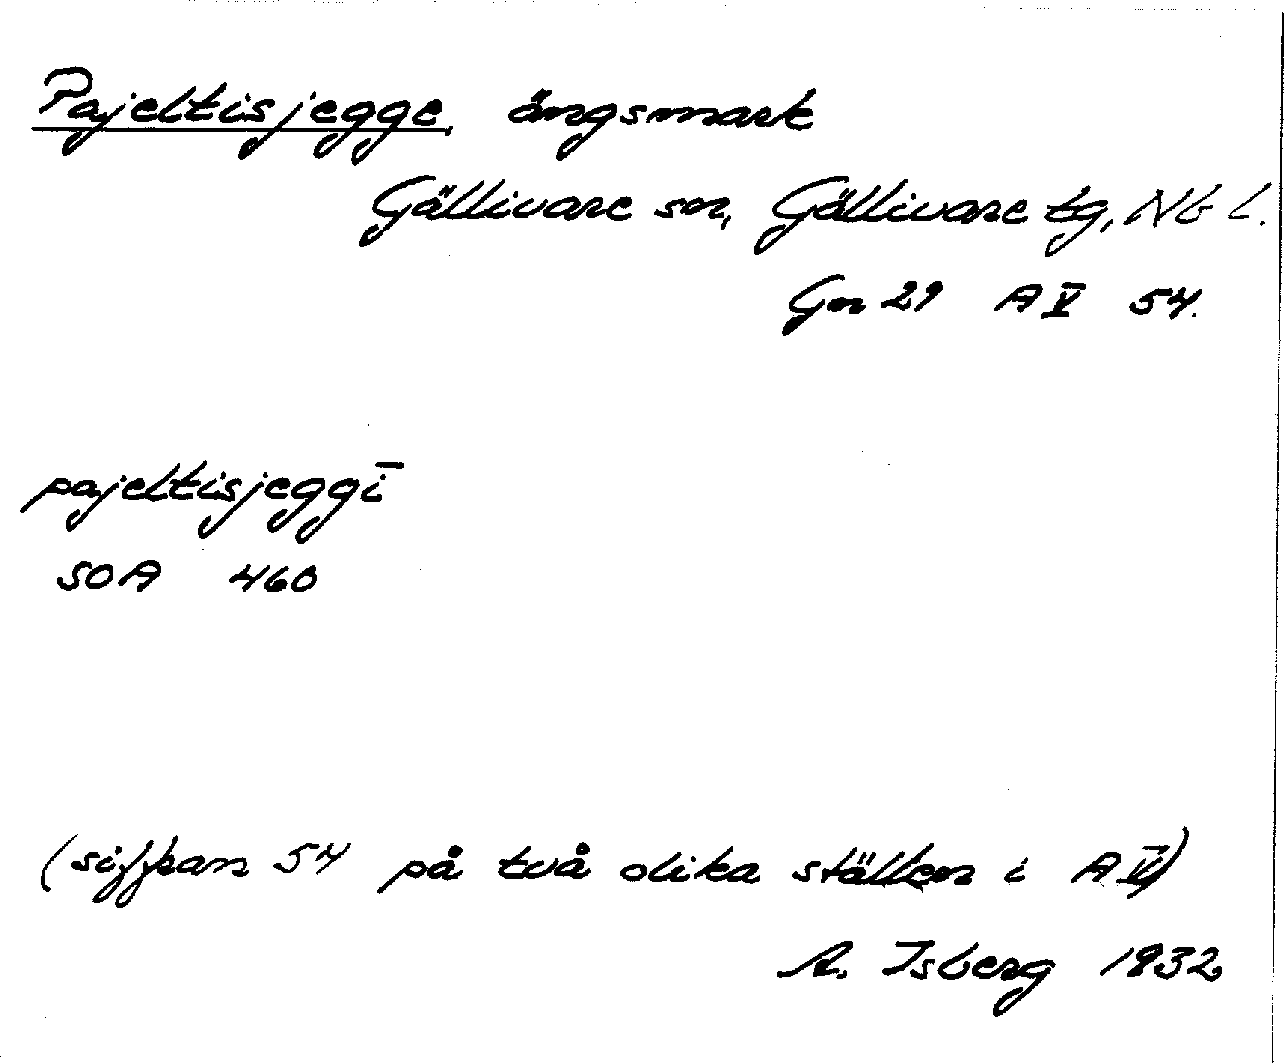 Pajeltisjegge, ängsmark
Gällivare sn, Gällivare tg, Nb l.
Gn 29 A V 54.
pajeltisjeggī
SOA 460
(siffran 54 på två olika ställen i A V)
A. Isberg 1932